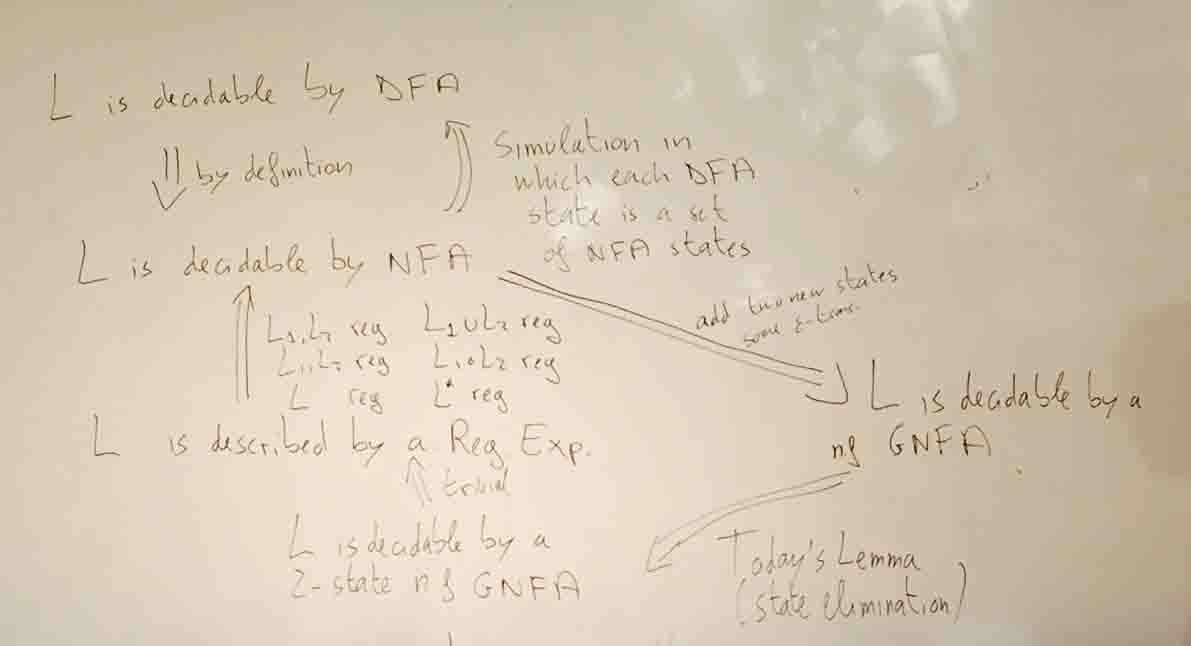 L is decidable by DFA
⇓ by definition
⇑ Simulation in
which each DFA
state is a set
of NFA states
L is decidable by NFA
add two new states
some ε-trans.
L₁, L₂ reg L₁∪L₂ reg
L₁, L₂ reg L₁∘L₂ reg
L reg L* reg
L is decidable by a
ng GNFA
L is described by a Reg. Exp.
⇑ trivial
L is decidable by a
2-state ng GNFA
Today's Lemma
(state elimination)